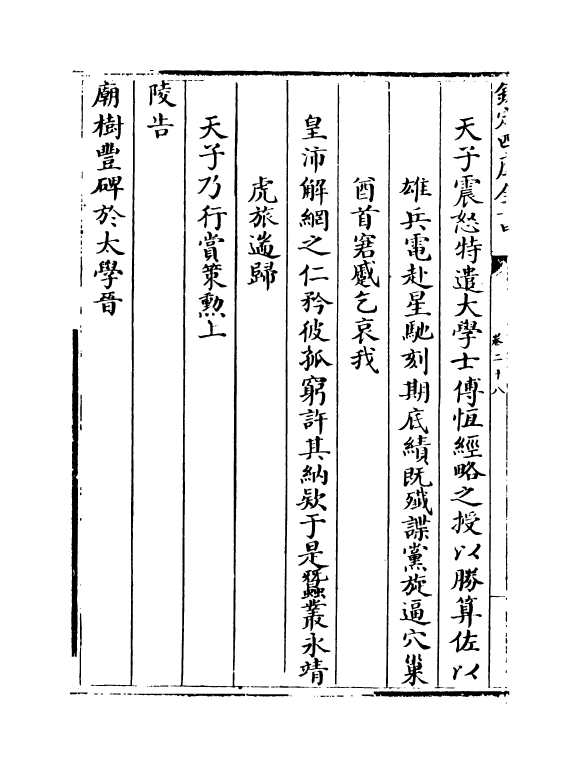 欽定四庫全書
卷二十八
天子震怒特遣大學士傅恒經略之授以勝算佐以
雄兵電赴星馳刻期底績既殲諜黨旋逼穴巢
酋首窘蹙乞哀我
皇沛解網之仁矜彼孤窮許其納欵于是蠶叢永靖
虎旅遄歸
天子乃行賞策勲上
陵告
廟樹豐碑於太學晉